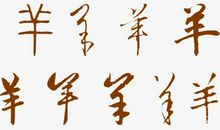 羊 羊 羊 羊
羊 羊 羊 羊 羊